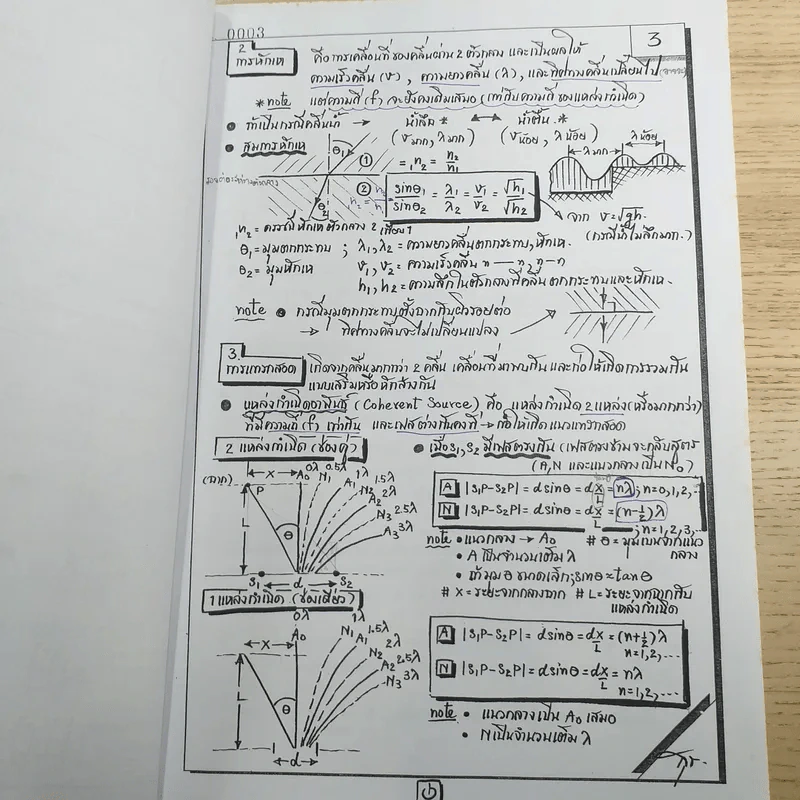 0003
3
2
การหักเห
คือการเคลื่อนที่ของคลื่นผ่าน 2 ตัวกลาง และเป็นผลให้
ความเร็วคลื่น (v), ความยาวคลื่น (λ), และทิศทางคลื่นเปลี่ยนไป
*note แต่ความถี่ (f) จะยังคงเดิมเสมอ (เท่ากับความถี่ของแหล่งกำเนิด)
• ถ้าเป็นกรณีคลื่นน้ำ → น้ำลึก* ↔ น้ำตื้น*
(v มาก, λ มาก) (v น้อย, λ น้อย)
• สมการหักเห
θ₁ ①
② θ₂
รอยต่อระหว่างตัวกลาง
= ₁n₂ = n₂/n₁
sinθ₁/sinθ₂ = λ₁/λ₂ = v₁/v₂ = √h₁/√h₂
λ มาก λ น้อย
จาก v = √gh
(กรณีน้ำไม่ลึกมาก.)
₁n₂ = ดรรชนีหักเหตัวกลาง 2 เทียบ 1
θ₁ = มุมตกกระทบ ; λ₁, λ₂ = ความยาวคลื่นตกกระทบ, หักเห.
θ₂ = มุมหักเห v₁, v₂ = ความเร็วคลื่น
h₁, h₂ = ความลึกในตัวกลางที่คลื่นตกกระทบและหักเห.
note • กรณีมุมตกกระทบตั้งฉากกับผิวรอยต่อ
→ ทิศทางคลื่นจะไม่เปลี่ยนแปลง
3.
การแทรกสอด
เกิดจากคลื่นมากกว่า 2 คลื่น เคลื่อนที่มาพบกัน และก่อให้เกิดการรวมกัน
แบบเสริมหรือหักล้างกัน
• แหล่งกำเนิดอาพันธ์ (Coherent Source) คือ แหล่งกำเนิด 2 แหล่ง (หรือมากกว่า)
ที่มีความถี่ (f) เท่ากัน และเฟสต่างกันคงที่ → ก่อให้เกิดแนวแทรกสอด
2 แหล่งกำเนิด (ช่องคู่)
• เมื่อ S₁, S₂ มีเฟสตรงกัน (เฟสตรงข้ามจะกลับสูตร
(A, N และแนวกลางเป็น N₀)
(ฉาก)
x
P
L
θ
0λ 0.5λ 1λ 1.5λ 2λ 2.5λ 3λ
A₀ N₁ A₁ N₂ A₂ N₃ A₃
S₁ d S₂
A |S₁P-S₂P| = d sinθ = dx/L = nλ ; n=0,1,2,...
N |S₁P-S₂P| = d sinθ = dx/L = (n-½)λ
; n=1,2,3,...
note • แนวกลาง → A₀ # θ = มุมเบนจากแนว
กลาง
• A เป็นจำนวนเต็ม λ
• ถ้ามุม θ ขนาดเล็ก ; sinθ ≈ tanθ
# X = ระยะจากกลางฉาก # L = ระยะจากฉากกับ
แหล่งกำเนิด
1 แหล่งกำเนิด (ช่องเดี่ยว)
x
L
θ
d
0λ 1λ 1.5λ 2λ 2.5λ 3λ
A₀ N₁ A₁ N₂ A₂ N₃
A |S₁P-S₂P| = d sinθ = dx/L = (n+½)λ
n=1,2,...
N |S₁P-S₂P| = d sinθ = dx/L = nλ
n=1,2,...
note • แนวกลางเป็น A₀ เสมอ
• N เป็นจำนวนเต็ม λ